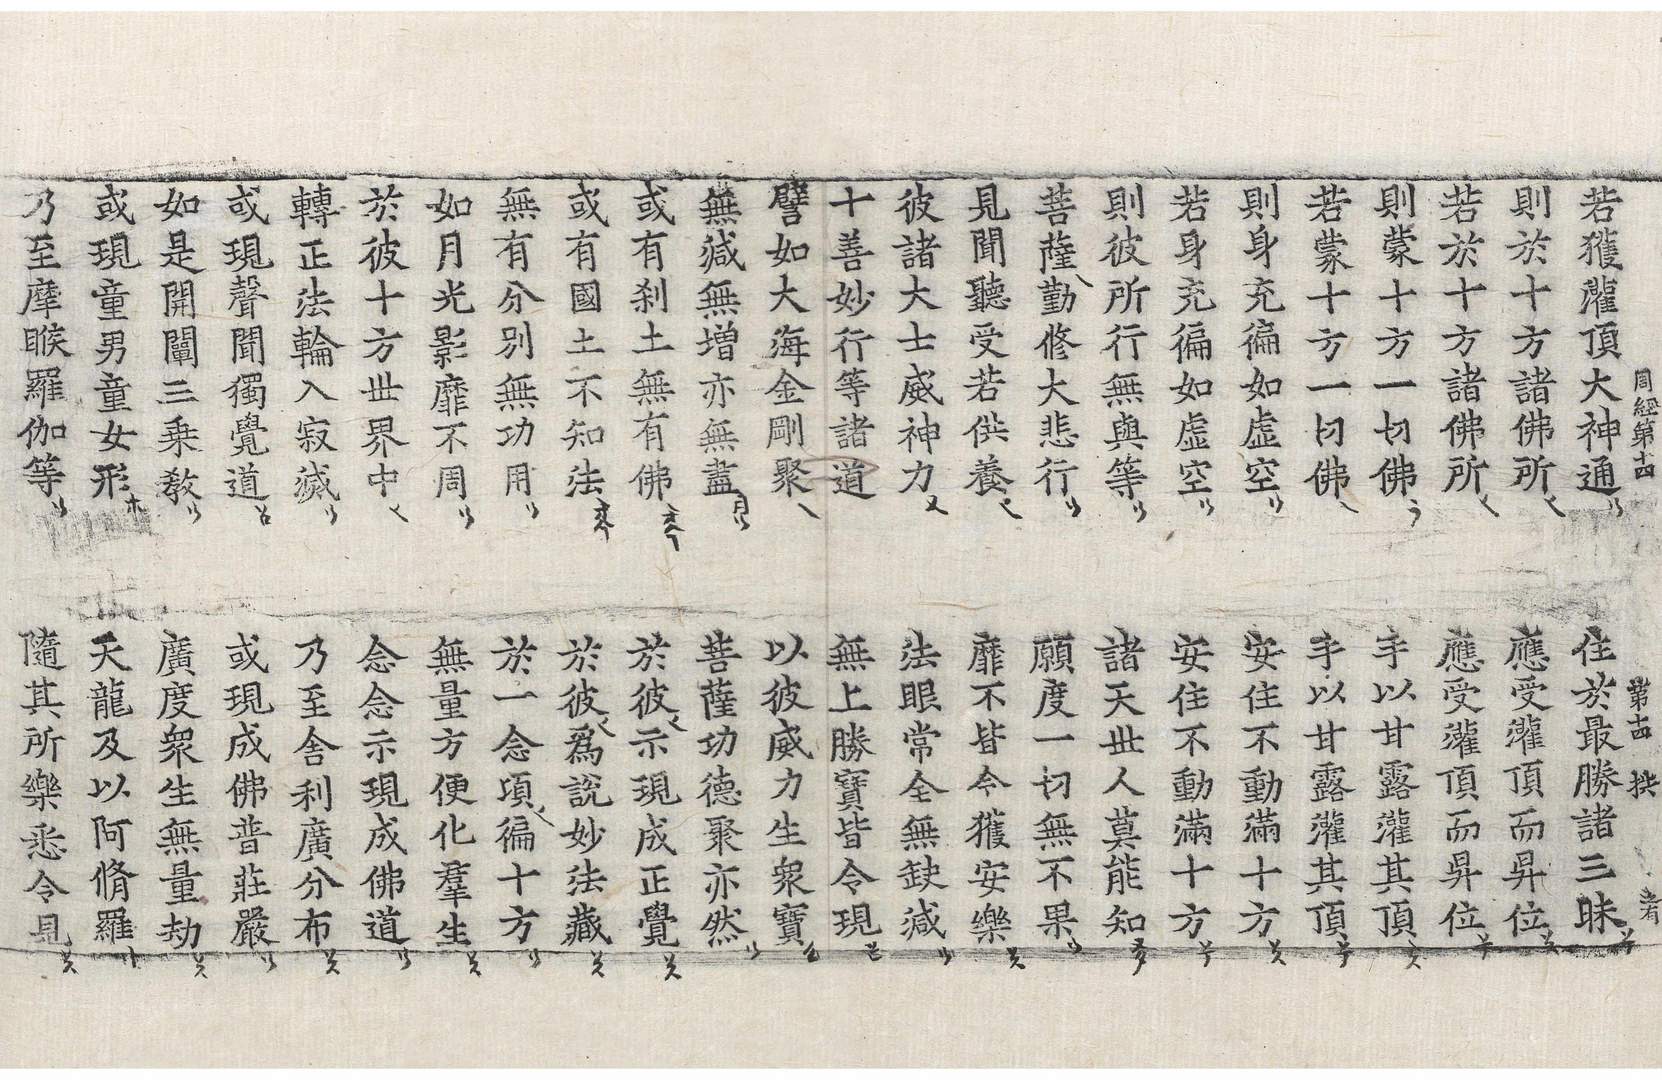 周經第十四 第十四 拱
若獲灌頂大神通 住於最勝諸三昧
則於十方諸佛所 應受灌頂而昇位
若於十方諸佛所 應受灌頂而昇位
則蒙十方一切佛 手以甘露灌其頂
若蒙十方一切佛 手以甘露灌其頂
則身充徧如虛空 安住不動滿十方
若身充徧如虛空 安住不動滿十方
則彼所行無與等 諸天世人莫能知
菩薩勤修大悲行 願度一切無不果
見聞聽受若供養 靡不皆令獲安樂
彼諸大士威神力 法眼常全無缺減
十善妙行等諸道 無上勝寶皆令現
譬如大海金剛聚 以彼威力生衆寶
無減無增亦無盡 菩薩功德聚亦然
或有刹土無有佛 於彼示現成正覺
或有國土不知法 於彼爲說妙法藏
無有分別無功用 於一念項徧十方
如月光影靡不周 無量方便化羣生
於彼十方世界中 念念示現成佛道
轉正法輪入寂滅 乃至舍利廣分布
或現聲聞獨覺道 或現成佛普莊嚴
如是開闡三乘教 廣度衆生無量劫
或現童男童女形 天龍及以阿脩羅
乃至摩睺羅伽等 隨其所樂悉令見